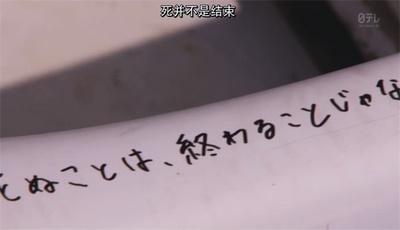 日テレ
死并不是结束
ぬことは、終わることじゃな